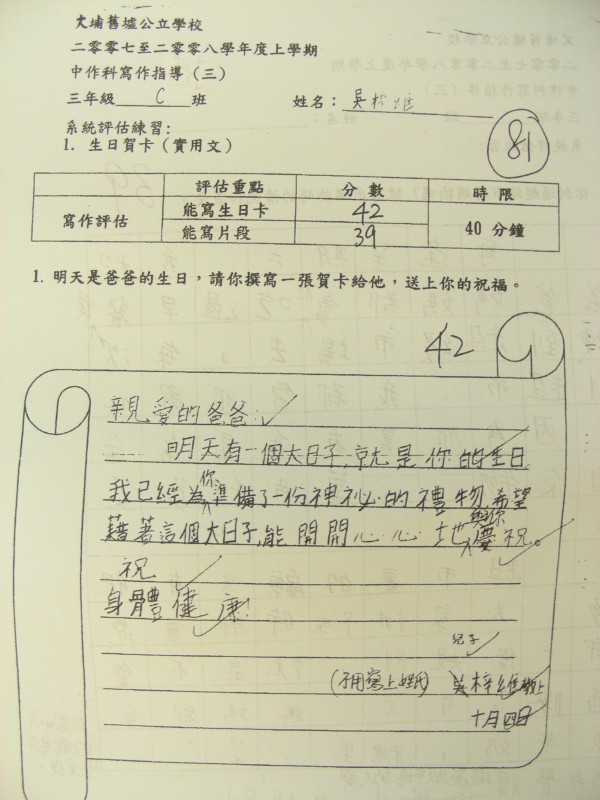 大埔舊墟公立學校
二零零七至二零零八學年度上學期
中作科寫作指導（三）
三年級 C 班 姓名：吳梓維
系統評估練習：
1. 生日賀卡（實用文）
81
評估重點 分數 時限
寫作評估 能寫生日卡 42 40 分鐘
能寫片段 39
1. 明天是爸爸的生日，請你撰寫一張賀卡給他，送上你的祝福。
42
親愛的爸爸：
明天有一個大日子,就是你的生日
我已經為你準備了一份神祕的禮物,希望
藉著這個大日子,能開開心心地與你慶祝。
祝
身體健康!
兒子
(不用寫上姓氏) 吳梓維敬上
十月四日